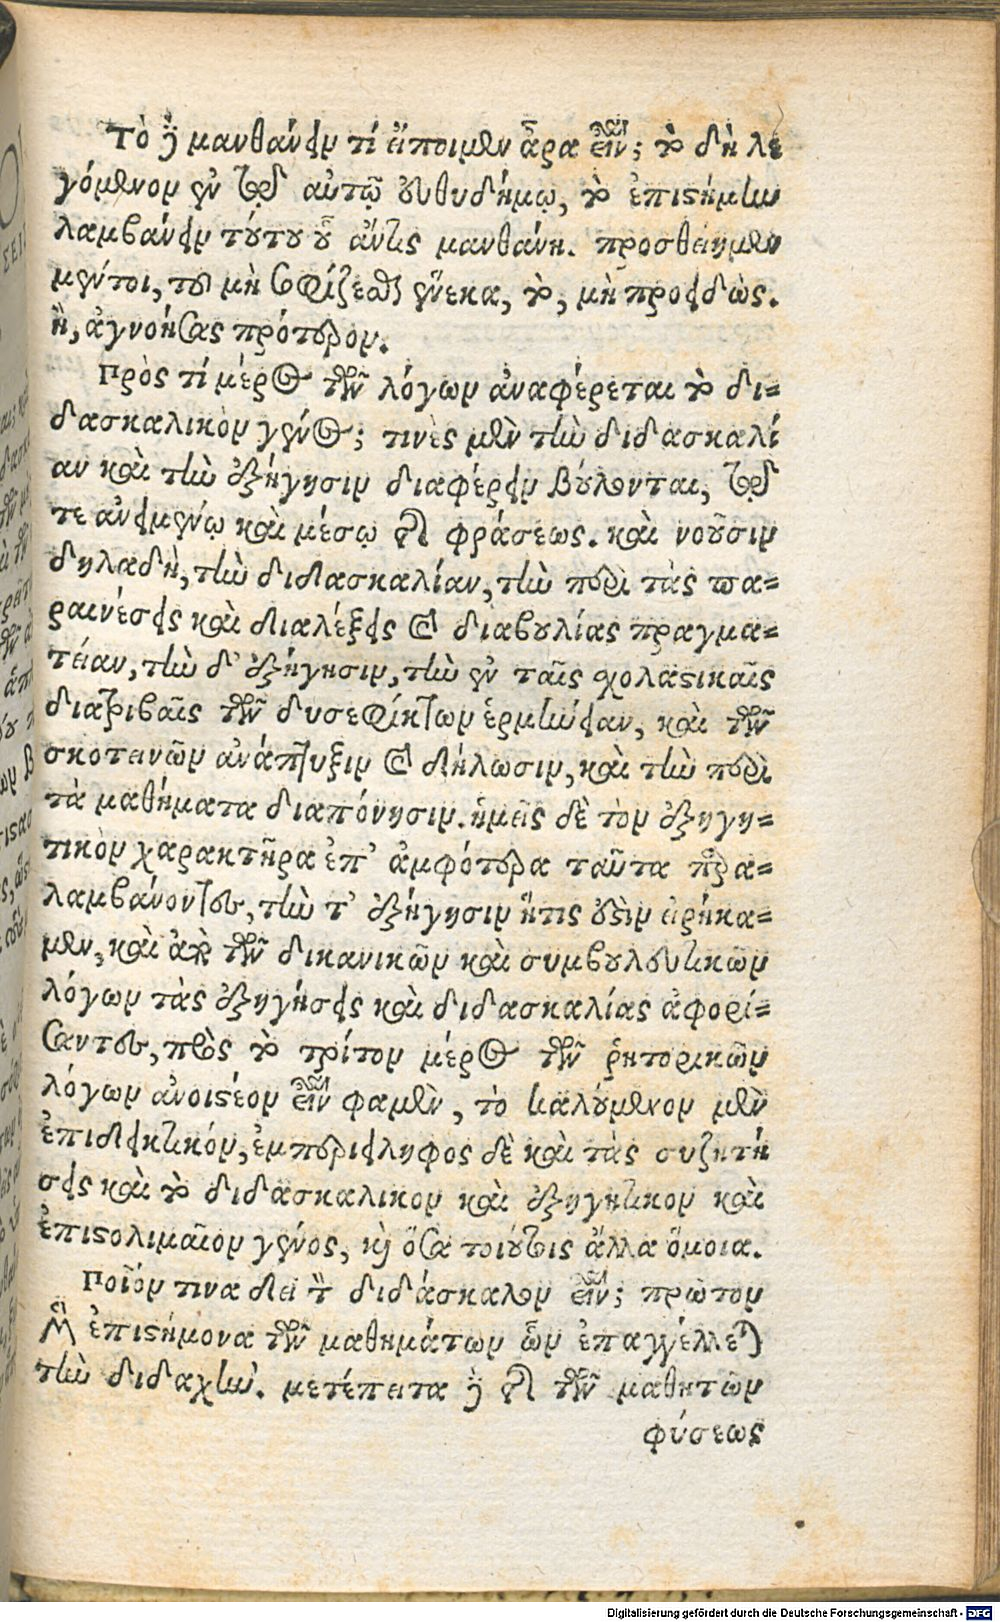 Τὸ δὲ μανθάνειν τί εἴποιμεν ἆρα εἶναι; τὸ δὴ λε
γόμενον ἐν τῷ αὐτῷ Εὐθυδήμῳ, τὸ ἐπιστήμην
λαμβάνειν τούτου οὗ ἄν τις μανθάνῃ. προσθείημεν
μέντοι, τοῦ μὴ σοφίζεσθαι ἕνεκα, τὸ, μὴ προειδὼς.
ἢ, ἀγνοήσας πρότερον.
Πρὸς τί μέρος τῶν λόγων ἀναφέρεται τὸ δι-
δασκαλικὸν γένος; τινὲς μὲν τὴν διδασκαλί
αν καὶ τὴν ἐξήγησιν διαφέρειν βούλονται, τῷ
τε ἀνειμένῳ καὶ μέσῳ τῆς φράσεως. καὶ νοῦσιν
δηλαδὴ, τὴν διδασκαλίαν, τὴν περὶ τὰς πα-
ραινέσεις καὶ διαλέξεις καὶ διαβουλίας πραγμα-
τείαν, τὴν δ' ἐξήγησιν, τὴν ἐν ταῖς σχολαστικαῖς
διατριβαῖς τῶν δυσεφίκτων ἑρμηνείαν, καὶ τῶν
σκοτεινῶν ἀνάπτυξιν καὶ δήλωσιν, καὶ τὴν περὶ
τὰ μαθήματα διαπόνησιν. ἡμεῖς δὲ τὸν ἐξηγη-
τικὸν χαρακτῆρα ἐπ' ἀμφότερα ταῦτα παρα-
λαμβάνοντες, τὴν τ' ἐξήγησιν ἥτις ἐστὶν εἰρήκα-
μεν, καὶ ἀπὸ τῶν δικανικῶν καὶ συμβουλευτικῶν
λόγων τὰς ἐξηγήσεις καὶ διδασκαλίας ἀφορί-
σαντες, πρὸς τὸ τρίτον μέρος τῶν ῥητορικῶν
λόγων ἀνοιστέον εἶναι φαμὲν, τὸ καλούμενον μὲν
ἐπιδεικτικόν, ἐμπεριειληφος δὲ καὶ τὰς συζητή
σεις καὶ τὸ διδασκαλικον καὶ ἐξηγητικον καὶ
ἐπιστολιμαῖον γένος, καὶ ὅσα τοιούτοις ἄλλα ὅμοια.
Ποῖόν τινα δεῖ τὸν διδάσκαλον εἶναι; πρῶτον
μὲν ἐπιστήμονα τῶν μαθημάτων ὧν ἐπαγγέλλεται
τὴν διδαχήν. μετέπειτα δὲ τῆς τῶν μαθητῶν
φύσεως
Digitalisierung gefördert durch die Deutsche Forschungsgemeinschaft - DFG